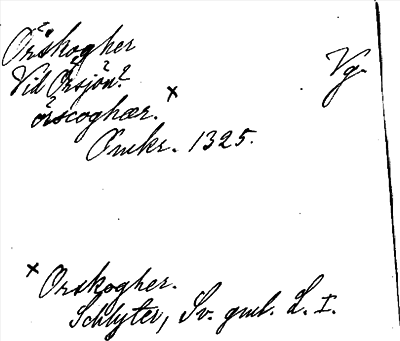 Örskogher
Vg.
Vid Örsjön?
örscoghær. ×
Omkr. 1325.
× Orskogher.
Schlyter, Sv. gml. L. I.